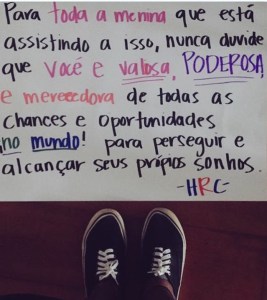 Para toda a menina que está
assistindo a isso, nunca duvide
que você e valosa, PODEROSA
e merecedora de todas as
chances e oportunidades
no mundo! para perseguir e
alcançar seus própios sonhos.
-HRC-